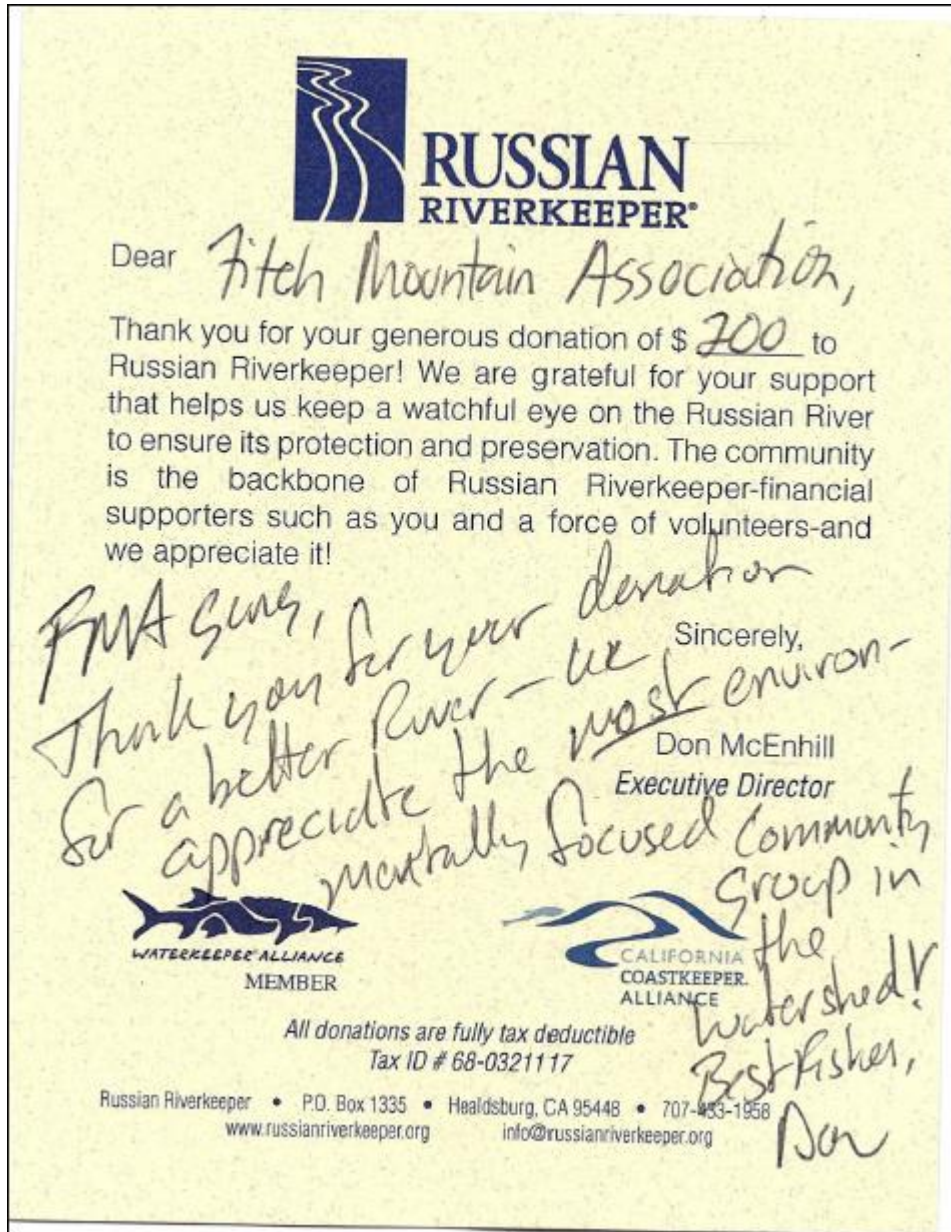 RUSSIAN
RIVERKEEPER®
Dear Fitch Mountain Association,
Thank you for your generous donation of $ 200 to
Russian Riverkeeper! We are grateful for your support
that helps us keep a watchful eye on the Russian River
to ensure its protection and preservation. The community
is the backbone of Russian Riverkeeper-financial
supporters such as you and a force of volunteers-and
we appreciate it!
FMA
Thank you for your donation
for a better River - we
appreciate the most environ-
mentally focused Community
group in
the
watershed!
Best Fishes,
Don
Sincerely,
Don McEnhill
Executive Director
WATERKEEPER ALLIANCE
MEMBER
CALIFORNIA
COASTKEEPER
ALLIANCE
All donations are fully tax deductible
Tax ID # 68-0321117
Russian Riverkeeper • P.O. Box 1335 • Healdsburg, CA 95448 • 707-433-1958
www.russianriverkeeper.org info@russianriverkeeper.org